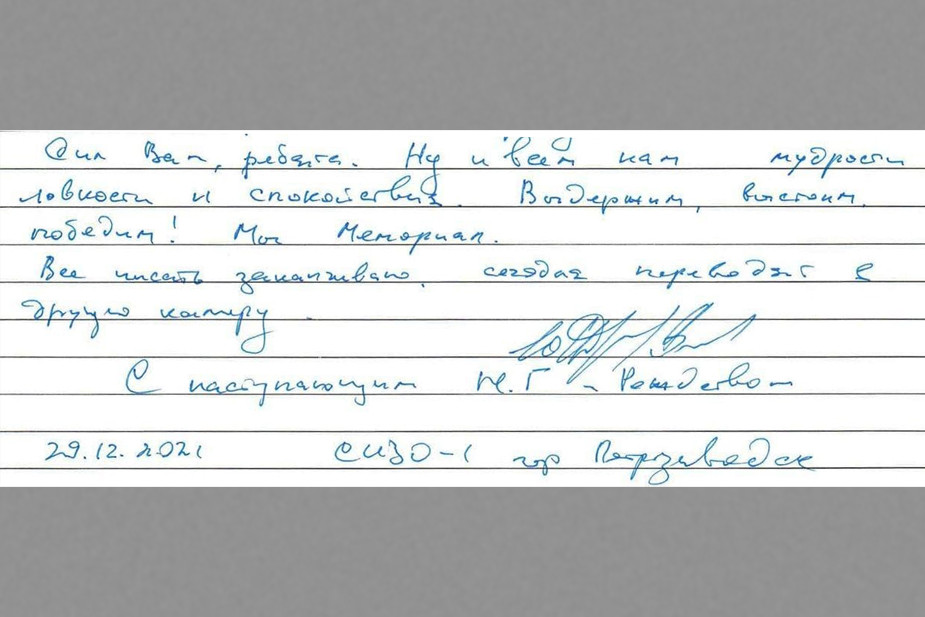 Сил Вам, ребята. Ну и всем нам мудрости
ловкости и спокойствия. Выдержим, выстоим,
победим! Мы Мемориал.
Все писать заканчиваю, сегодня переводят в
другую камеру.
С наступающим Н.Г - Рождеством
29.12.2021 СИЗО-1 гор Петрозаводск